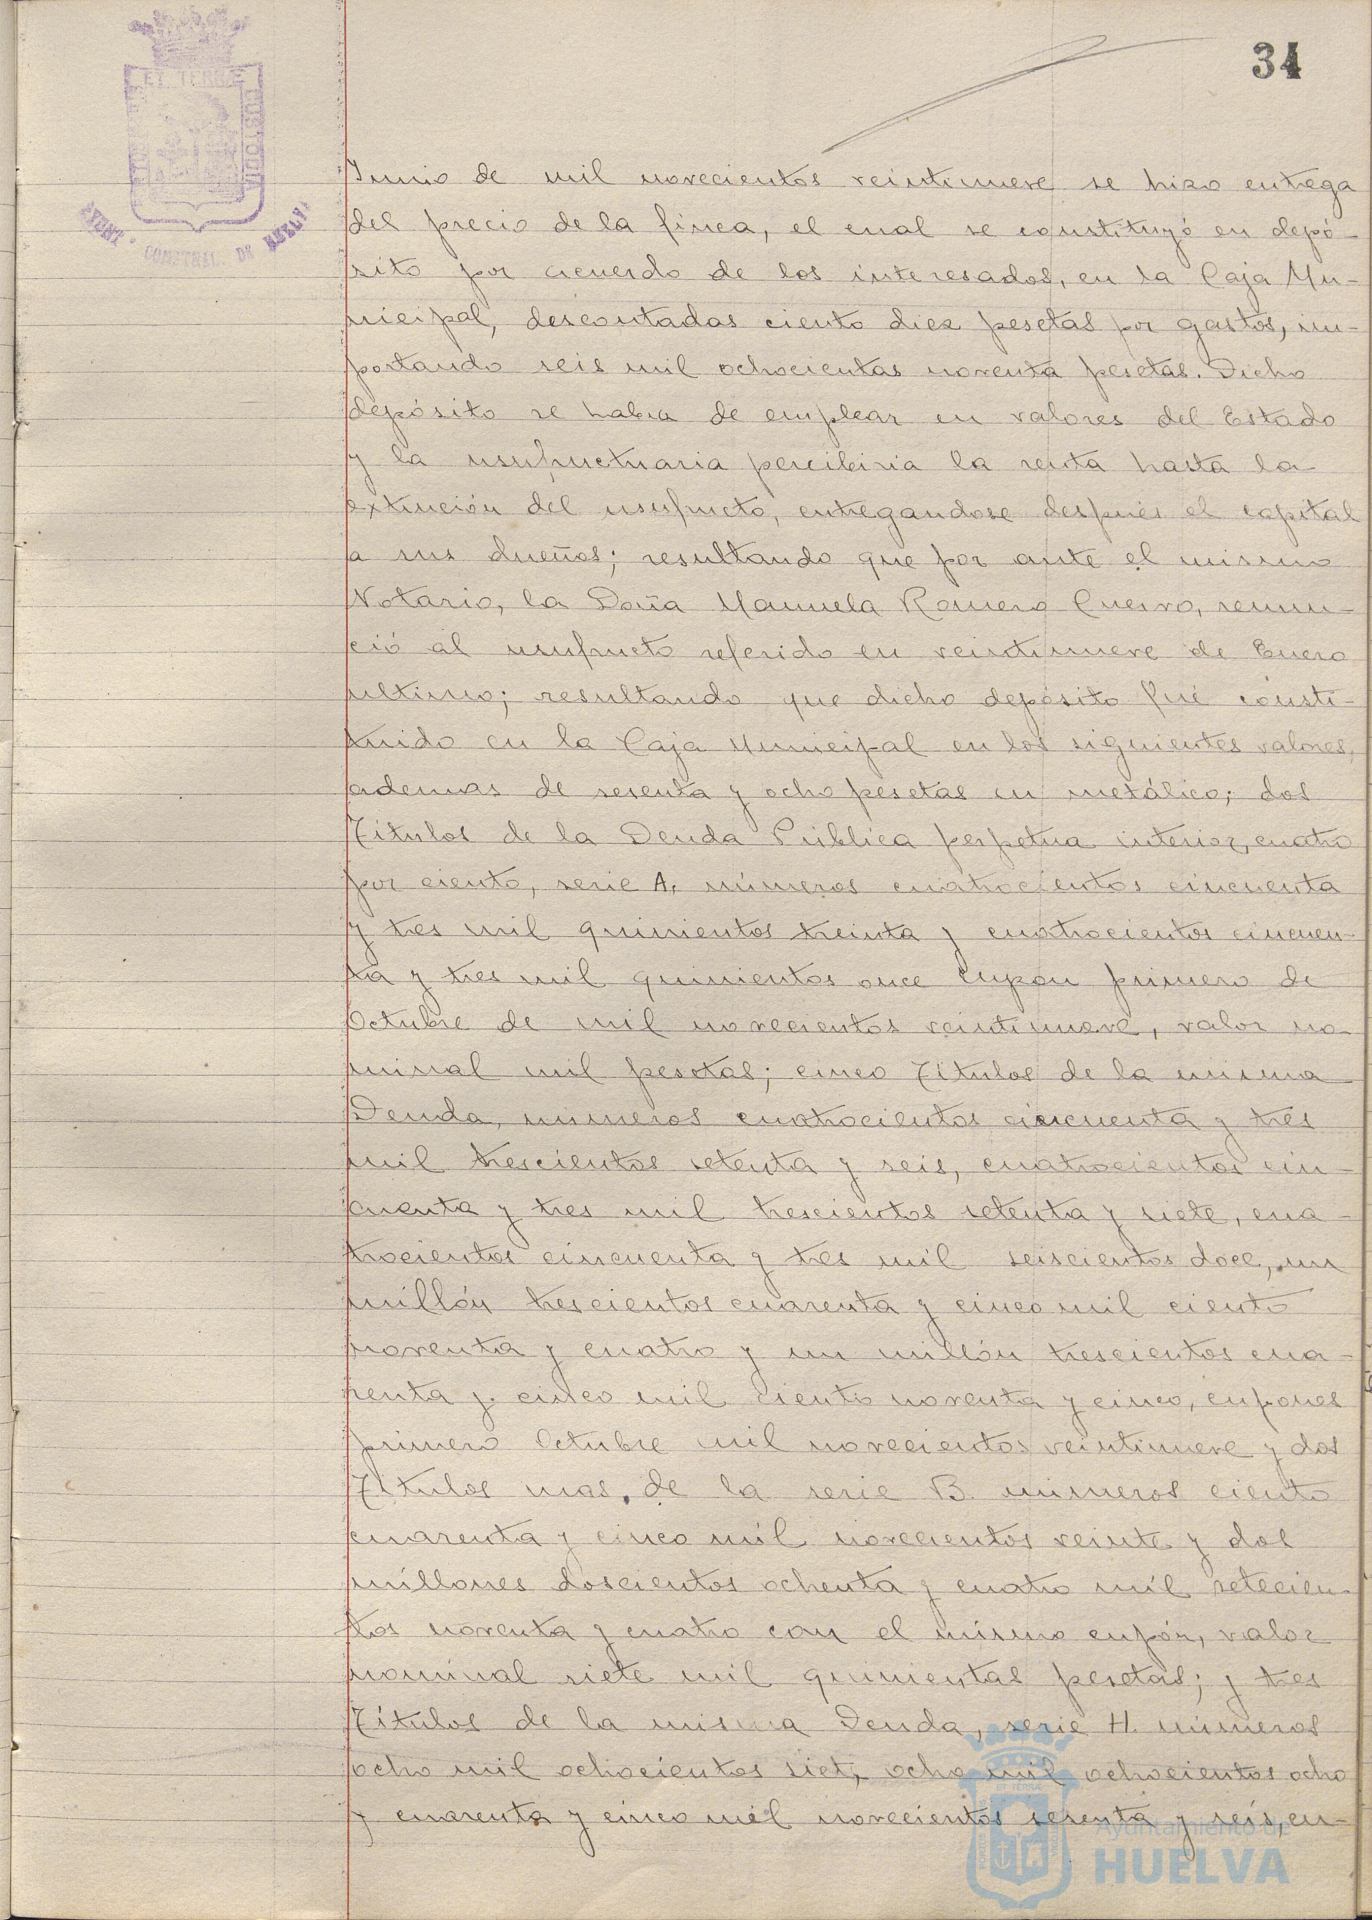 34
ET TERRÆ
CUSTODIA
AYUNT · CONSTNAL. DE HUELVA
Junio de mil novecientos veintinueve se hizo entrega
del precio de la finca, el cual se constituyó en depó-
sito por acuerdo de los interesados, en la Caja Mu-
nicipal, descontadas ciento diez pesetas por gastos, im-
portando seis mil ochocientas noventa pesetas. Dicho
depósito se habia de emplear en valores del Estado
y la usufructuaria percibiria la renta hasta la
extinción del usufructo, entregandose despues el capital
a sus dueños; resultando que por ante el mismo
Notario, la Doña Manuela Romero Cuervo, renun-
ció al usufructo referido en veintinueve de Enero
ultimo; resultando que dicho depósito fué consti-
tuido en la Caja Municipal en los siguientes valores,
ademas de sesenta y ocho pesetas en metálico; dos
Títulos de la Deuda Pública perpetua interior, cuatro
por ciento, serie A, números cuatrocientos cincuenta
y tres mil quinientos treinta y cuatrocientos cincuen-
ta y tres mil quinientos once cupon primero de
Octubre de mil novecientos veintinueve, valor no-
minal mil pesetas; cinco Títulos de la misma
Deuda, numeros cuatrocientos cincuenta y tres
mil trescientos setenta y seis, cuatrocientos cin-
cuenta y tres mil trescientos setenta y siete, cua-
trocientos cincuenta y tres mil seiscientos doce, un
millón trescientos cuarenta y cinco mil ciento
noventa y cuatro y un millón trescientos cua-
renta y cinco mil ciento noventa y cinco, cupones
primero Octubre mil novecientos veintinueve y dos
Títulos mas, de la serie B. números ciento
cuarenta y cinco mil novecientos veinte y dos
millones doscientos ochenta y cuatro mil setecien-
tos noventa y cuatro con el mismo cupón, valor
nominal siete mil quinientas pesetas; y tres
Títulos de la misma Deuda, serie H. números
ocho mil ochocientos siete, ocho mil ochocientos ocho
y cuarenta y cinco mil novecientos sesenta y seis, cu-
Ayuntamiento de
HUELVA